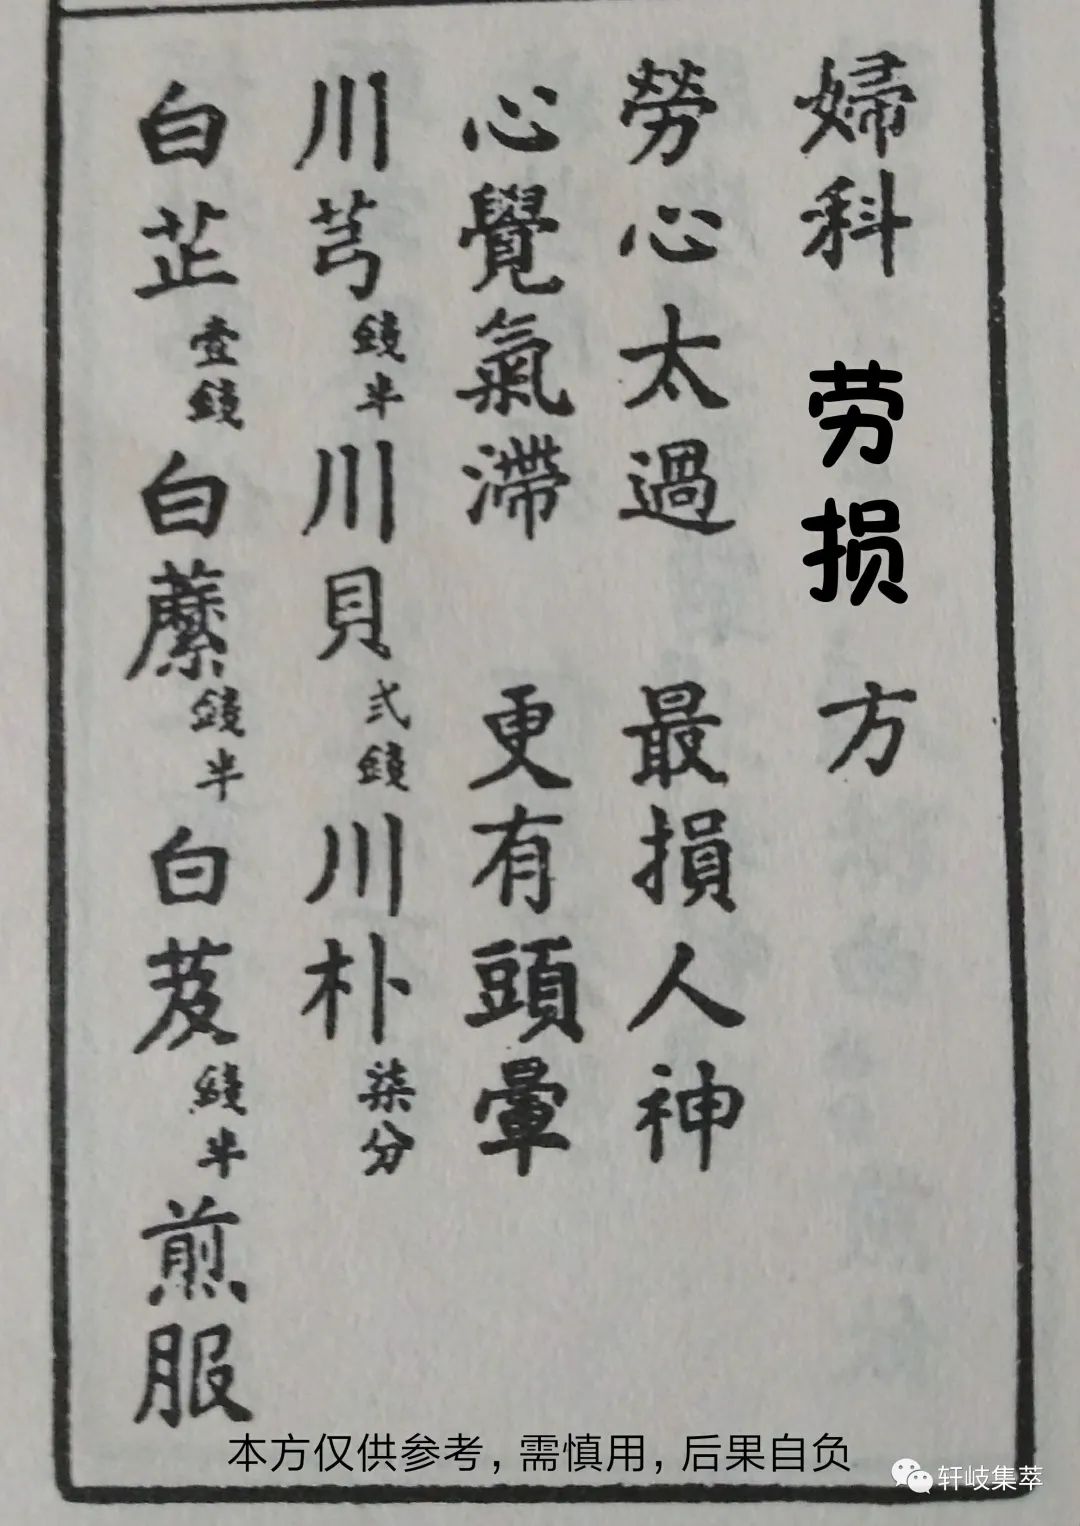 婦科 劳损 方
勞心太過 最損人神
心覺氣滯 更有頭暈
川芎錢半川貝弍錢川朴柒分
白芷壹錢白錢半白芨錢半煎服
本方仅供参考，需慎用，后果自负
轩岐集萃